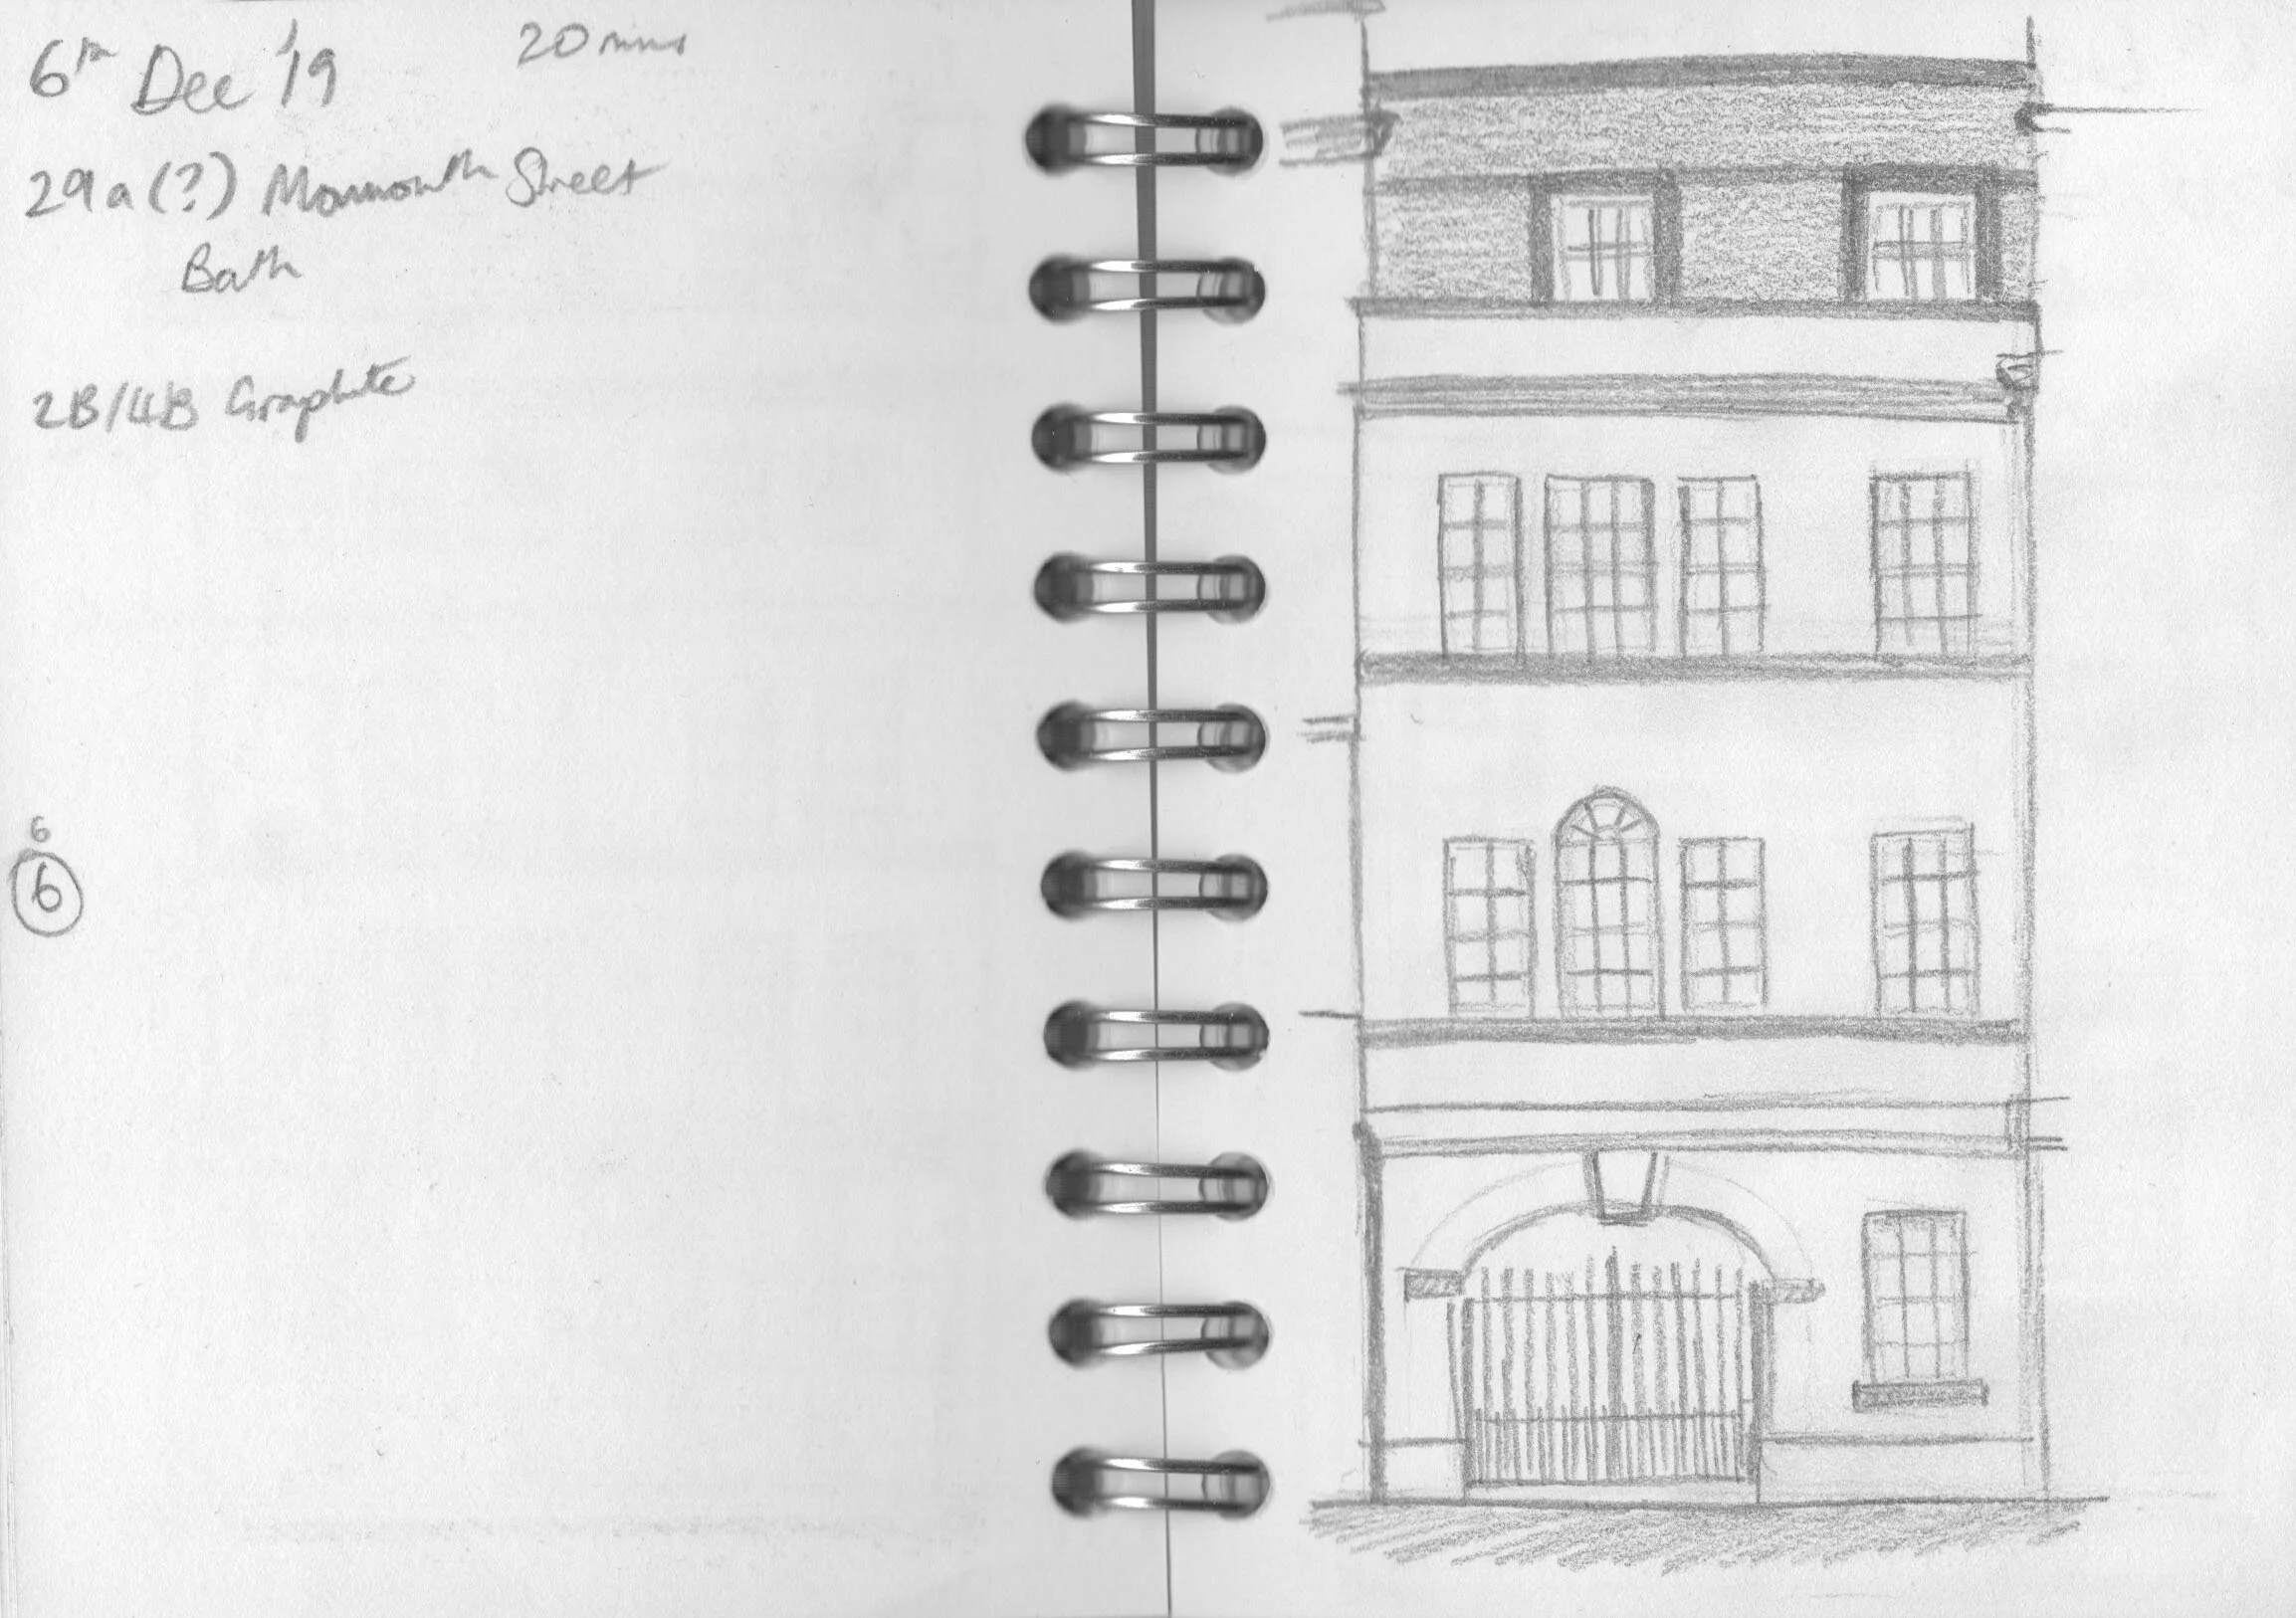 6th Dec '19
20 mins
29a (?) Monmouth Street
Bath
2B/4B Graphite
6
6